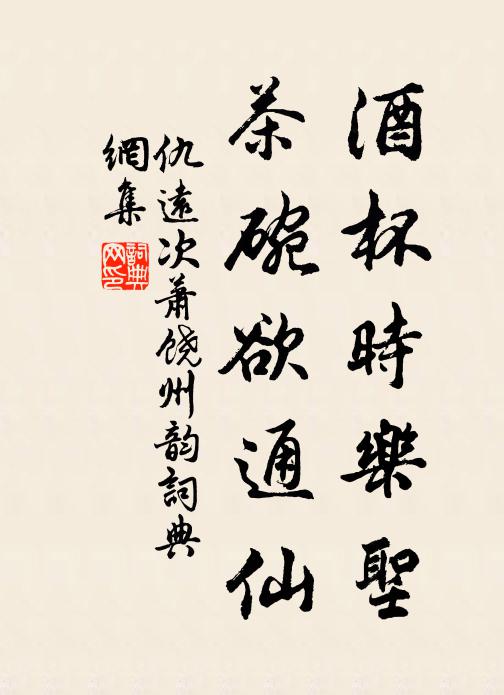 酒杯時樂聖
茶碗欲通仙
仇遠次蕭饒州韵詞典
網集
詞典
网印